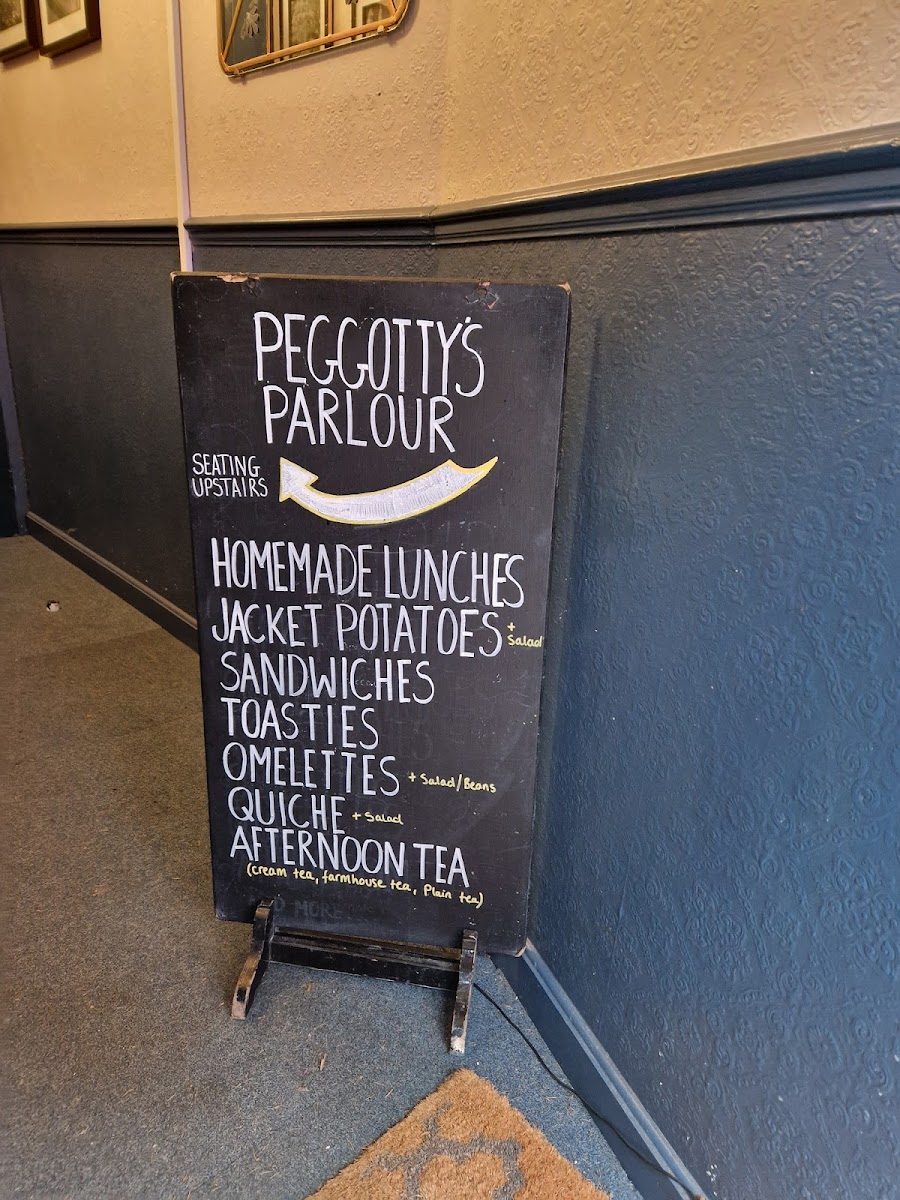 PEGGOTTY'S
PARLOUR
SEATING
UPSTAIRS
HOMEMADE LUNCHES
JACKET POTATOES + Salad
SANDWICHES
TOASTIES
OMELETTES + Salad/Beans
QUICHE + Salad
AFTERNOON TEA
(cream tea, farmhouse tea, Plain tea)
MORE